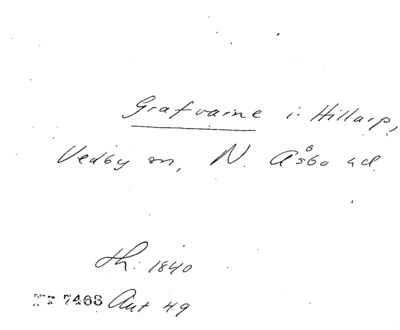 Grafvarne i Hillarp,
Vedby sn, N. Åsbo hd.
th: 1840
Nr 7468 Ant 49